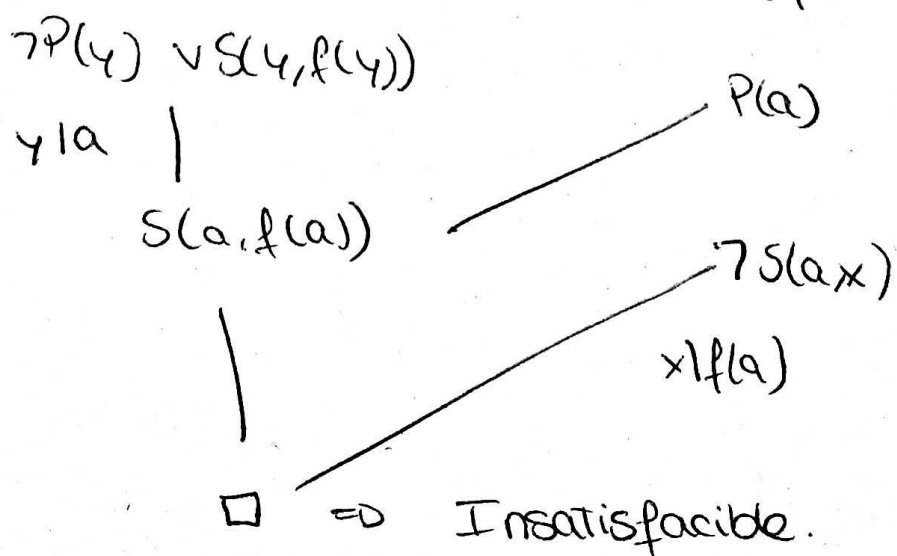 ¬P(y) ∨ S(y,f(y))
P(a)
y|a
S(a,f(a))
¬S(a,x)
x\f(a)
□ => Insatisfacible.